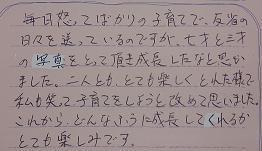 毎日怒ってばかりの子育てで、反省の
日々を送っているのですが、七才と三才
の写真をとって頂き成長したなと思い
ました。二人とも、とても楽しくとれた様で
私も笑って子育てをしようと改めて思いました。
これから、どんなふうに成長してくれるか
とても楽しみです。